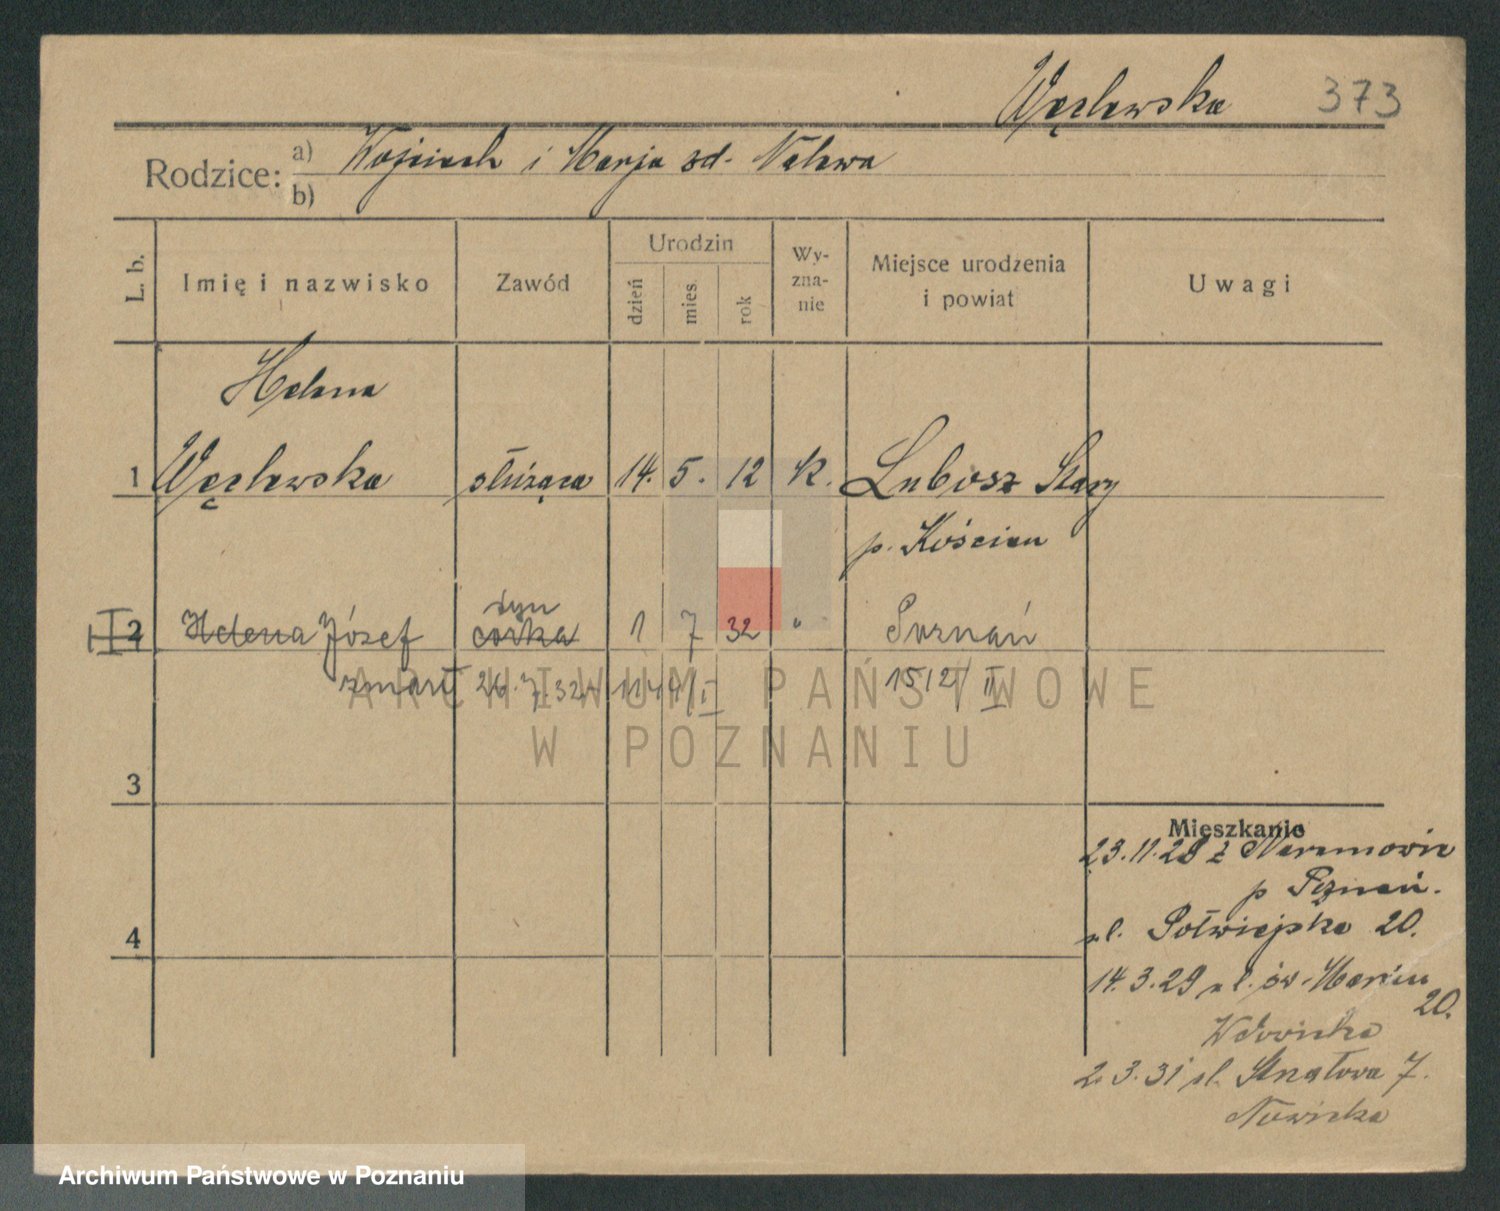 Węclewska 373
Rodzice: a) Wojciech i Marja zd. Nalewa
b)
L. b. Imię i nazwisko Zawód Urodzin dzień mies. rok Wy-zna-nie Miejsce urodzenia i powiat Uwagi
Helena
1 Węclewska służąca 14. 5. 12 k. Lubosz Stary
p. Kościan
syn
2 Helena Józef córka 1 7 32 " Poznań
zmarł 26.7.32 1512/II
ARCHIWUM PAŃSTWOWE
W POZNANIU
3
Mieszkanie
23.11.28 z Naramowic
p Poznań.
4 ul. Półwiejska 20.
14.3.29 ul. św. Marcin
20.
2.3.31 ul. 7.
Nowicka
Archiwum Państwowe w Poznaniu